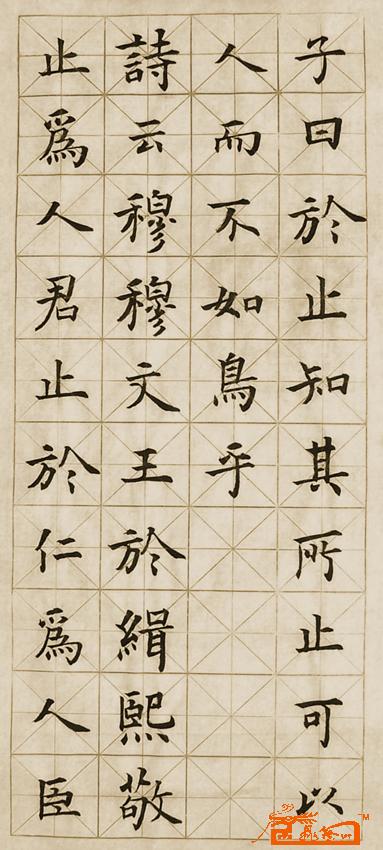 子曰於止知其所止可以
人而不如鳥乎
詩云穆穆文王於緝熙敬
止為人君止於仁為人臣